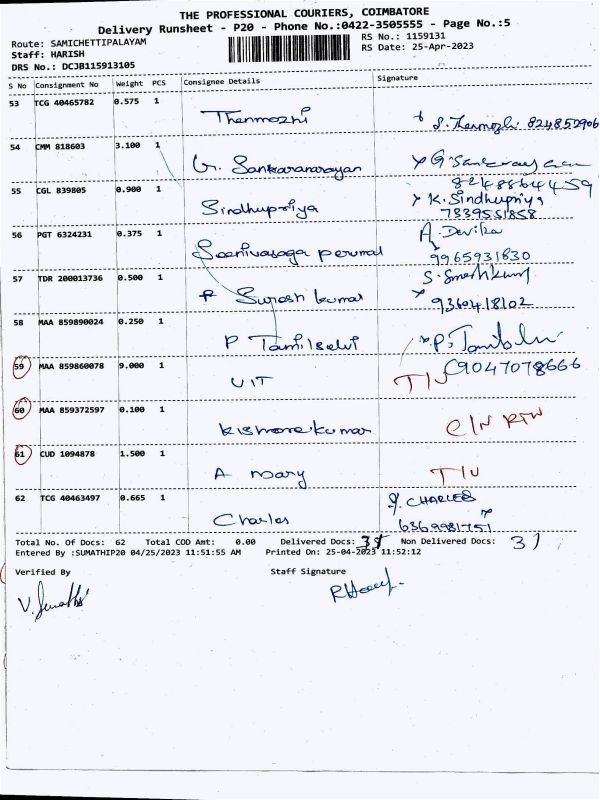 THE PROFESSIONAL COURIERS, COIMBATORE
Delivery Runsheet - P20 - Phone No.:0422-3505555 - Page No.:5
Route: SAMICHETTIPALAYAM
RS No.: 1159131
Staff: HARISH
RS Date: 25-Apr-2023
DRS No.: DCJB115913105
S No Consignment No Weight PCS Consignee Details Signature
53 TCG 40465782 0.575 1 Thenmozhi
54 CMM 818603 3.100 1 G. Sankaranarayan
8248864459
55 CGL 839805 0.900 1 Sindhupriya K. Sindhupriya
7339551858
56 PGT 6324231 0.375 1 Seenivasaga perumal A. Devika
9965931830
57 TDR 200013736 0.500 1 Suresh kumar
9360418102
58 MAA 859890024 0.250 1 P Tamilselvi
9047078666
59 MAA 859860078 9.000 1 UIT
60 MAA 859372597 0.100 1 Kishorekumar
61 CUD 1094878 1.500 1 A mary
62 TCG 40463497 0.665 1 Charles CHARLES
6369981751
Total No. Of Docs: 62 Total COD Amt: 0.00 Delivered Docs: 31 Non Delivered Docs: 31
Entered By :SUMATHIP20 04/25/2023 11:51:55 AM Printed On: 25-04-2023 11:52:12
Verified By Staff Signature